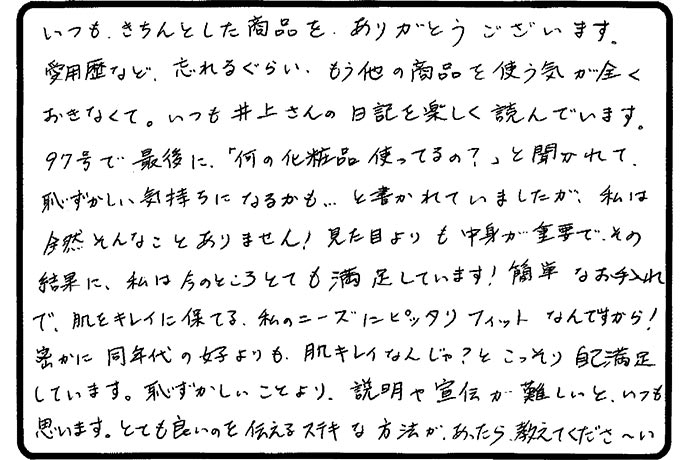 いつも、きちんとした商品を、ありがとうございます。
愛用歴など、忘れるぐらい、もう他の商品を使う気が全く
おきなくて。いつも井上さんの日記を楽しく読んでいます。
97号で最後に、「何の化粧品使ってるの?」と聞かれて、
恥ずかしい気持ちになるかも…と書かれていましたが、私は
全然そんなことありません!見た目よりも中身が重要で、その
結果に、私は今のところとても満足しています!簡単なお手入れ
で、肌をキレイに保てる、私のニーズにピッタリフィットなんですから!
密かに同年代の女子よりも、肌キレイなんじゃ?とこっそり自己満足
しています。恥ずかしいことより、説明や宣伝が難しいと、いつも
思います。とても良いのを伝えるステキな方法が、あったら、教えてくださ〜い